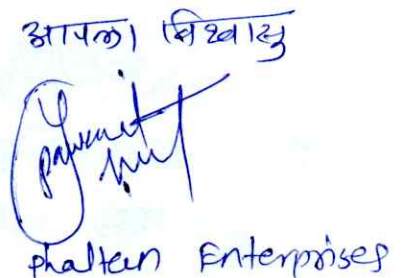 आपला विश्वासु
phaltan Enterprises